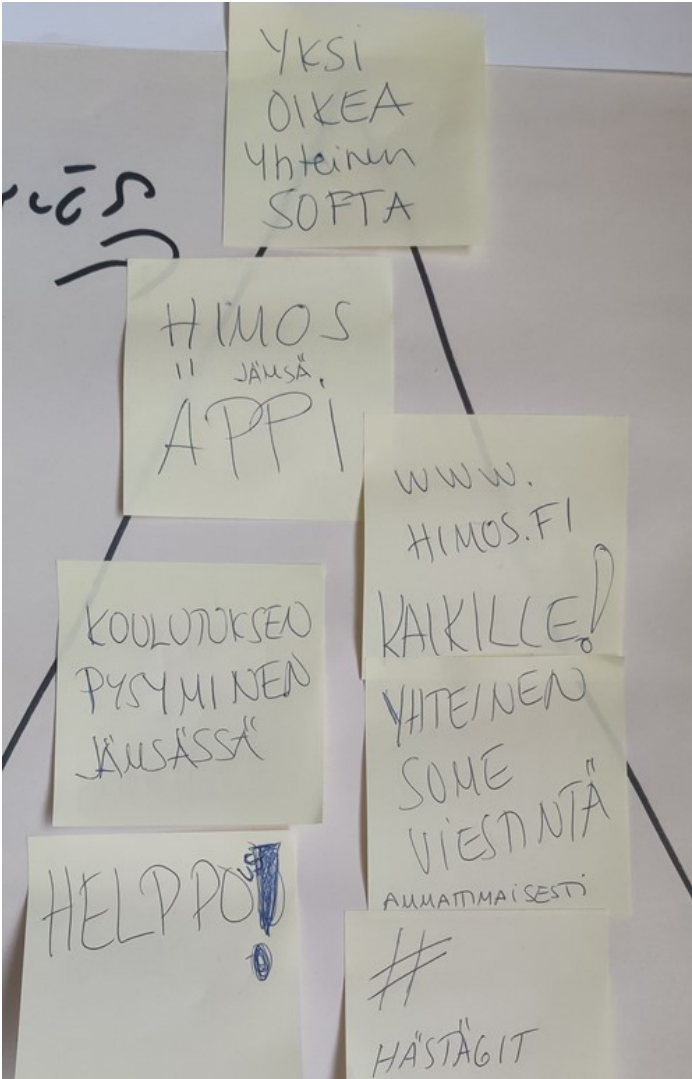 YKSI
OIKEA
Yhteinen
SOFTA
HIMOS
JÄMSÄ
ÄPPI
WWW.
HIMOS.FI
KAIKILLE!
KOULUTUKSEN
PYSYMINEN
JÄMSÄSSÄ
YHTEINEN
SOME
VIESTINTÄ
AMMATTIMAISESTI
HELPPOUS!
#
HÄSTÄGIT